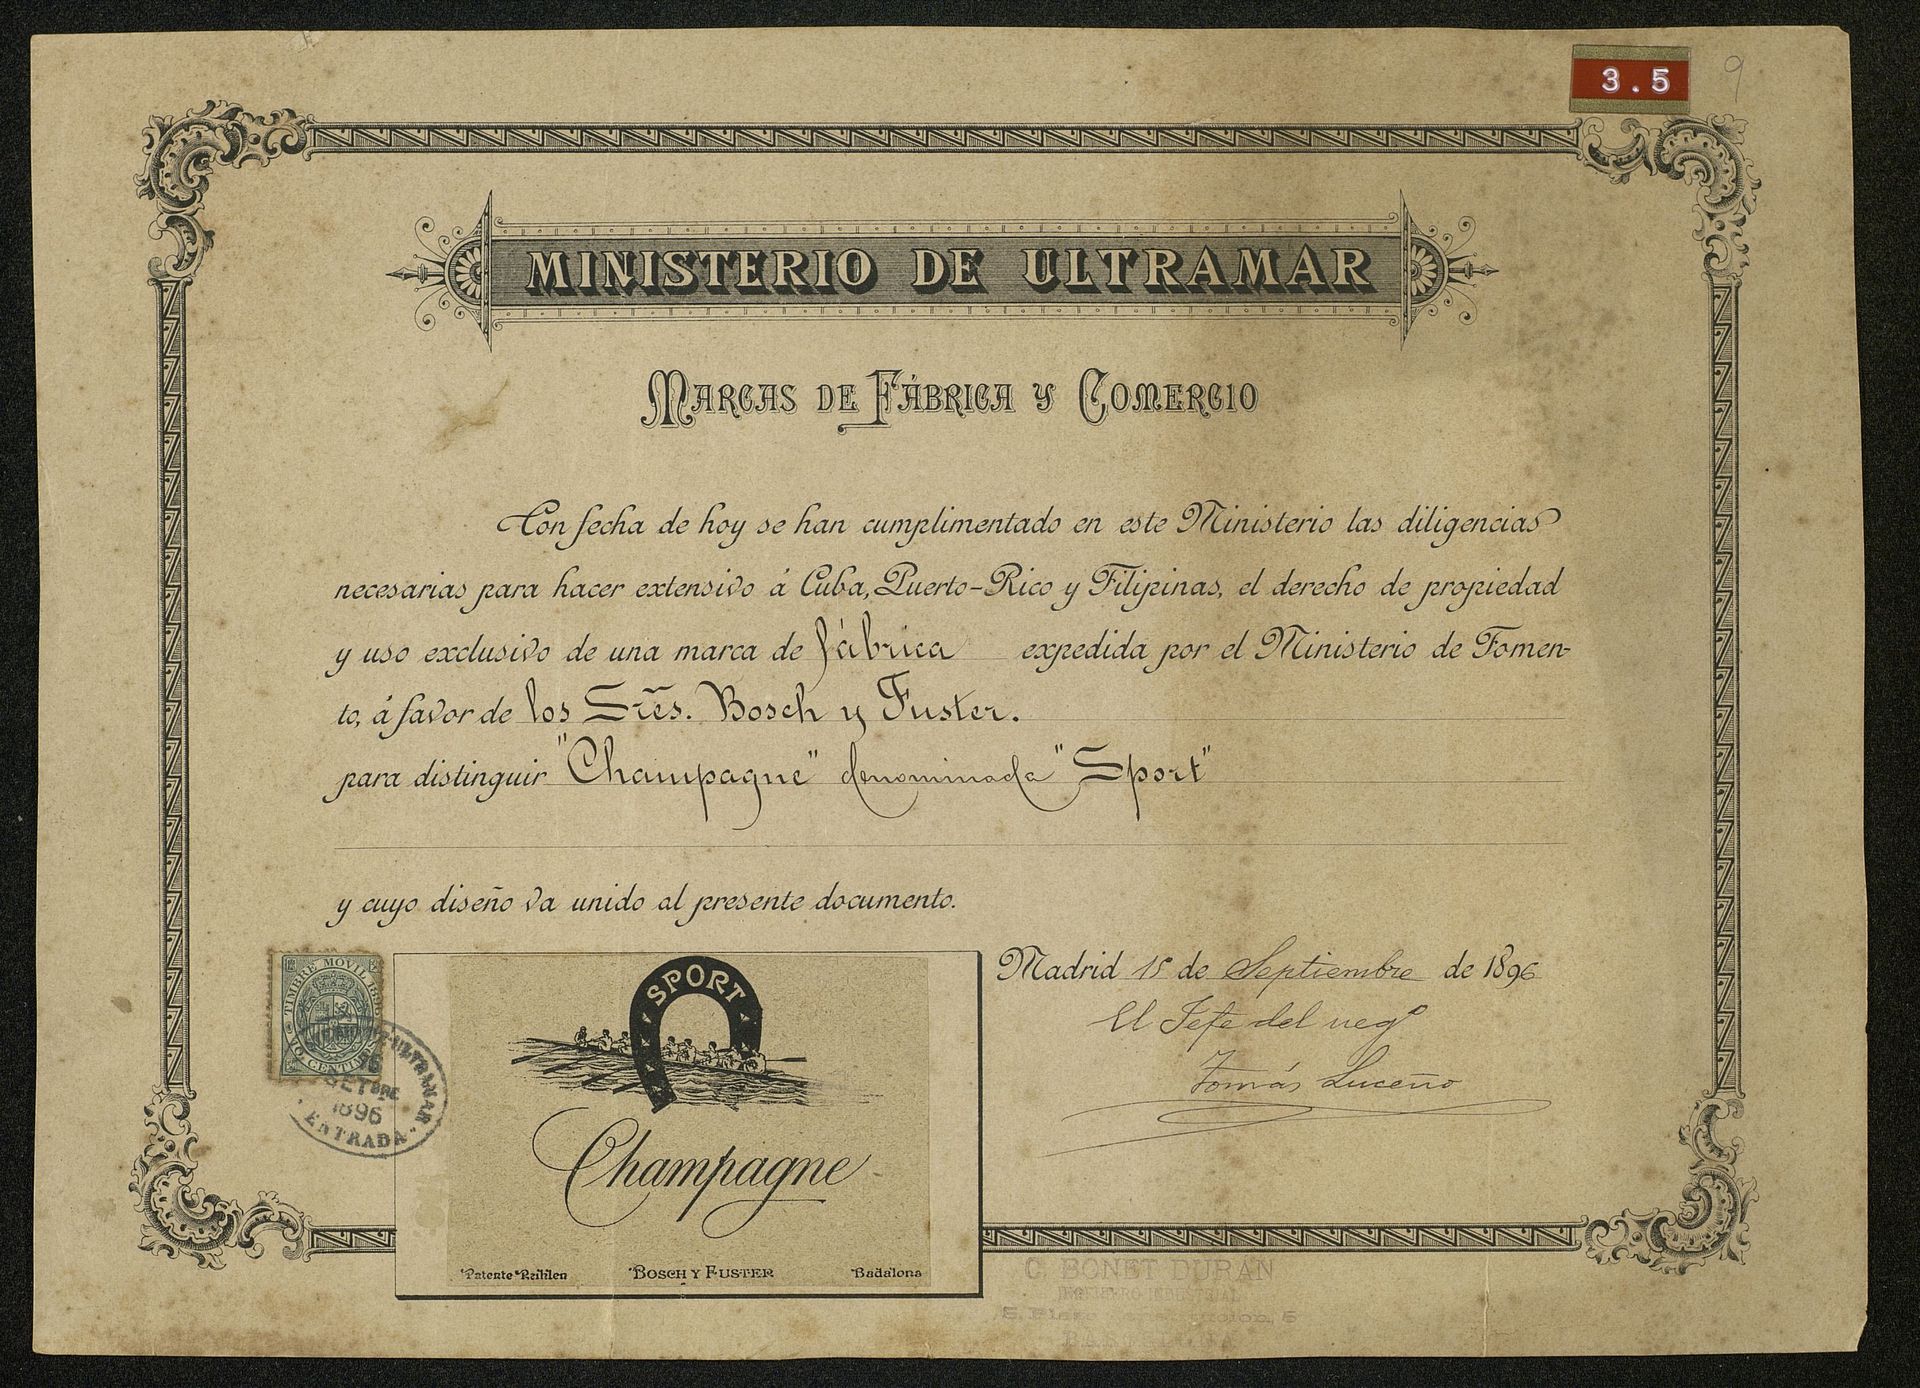 3.5
9
MINISTERIO DE ULTRAMAR
MARCAS DE FÁBRICA Y COMERCIO
Con fecha de hoy se han cumplimentado en este Ministerio las diligencias
necesarias para hacer extensivo á Cuba, Puerto-Rico y Filipinas, el derecho de propiedad
y uso exclusivo de una marca de fábrica expedida por el Ministerio de Fomen-
to, á favor de los Sres. Bosch y Fuster.
para distinguir "Champagne" denominada "Sport"
y cuyo diseño va unido al presente documento.
Madrid 15 de Septiembre de 1896
El Jefe del negº
Tomás Luceño
TIMBRE MOVIL 1896
10 CENTIMOS
ULTRAMAR
SETBRE
1896
ENTRADA
SPORT
Champagne
Patente Reihlen
BOSCH Y FUSTER
Badalona
C. BONET DURÁN
INGENIERO INDUSTRIAL
BARCELONA